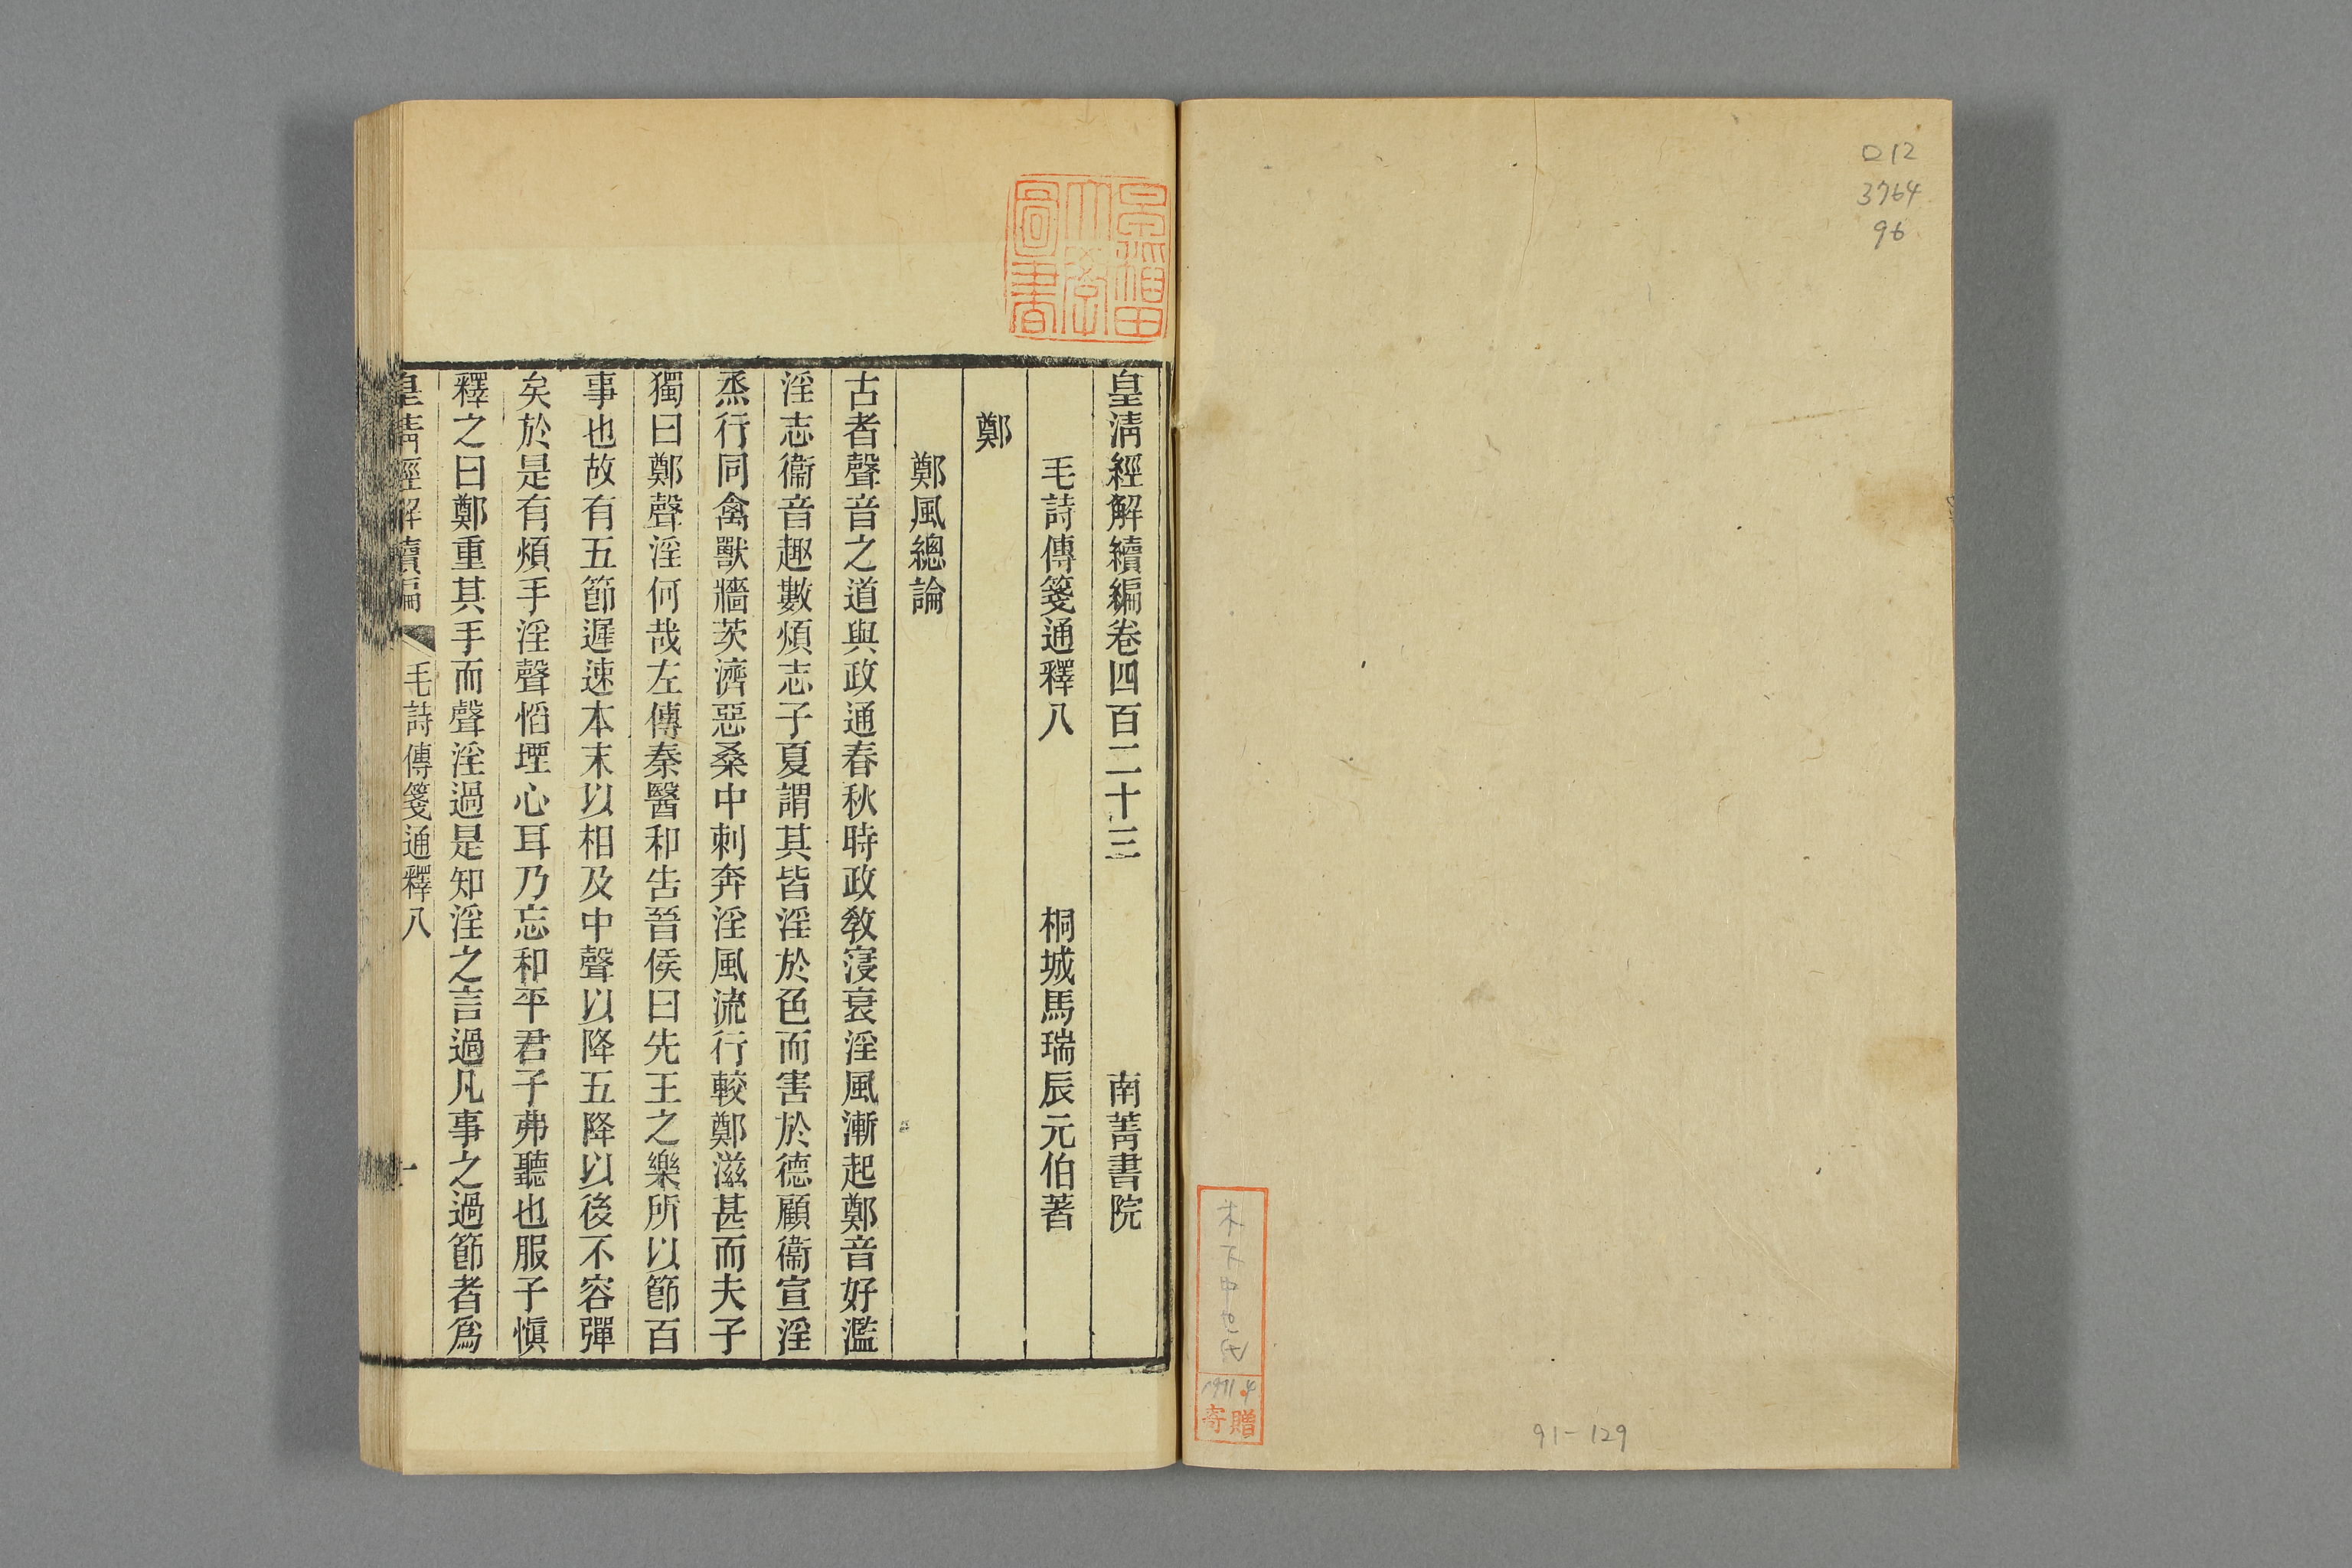 ロ12
3764
96
木下中也氏
1971.4
寄贈
91-129
早稲田大學圖書
皇清經解續編卷四百二十三 南菁書院
毛詩傳箋通釋八 桐城馬瑞辰元伯著
鄭
鄭風總論
古者聲音之道與政通春秋時政敎寖衰淫風漸起鄭音好濫
淫志衞音趣數煩志子夏謂其皆淫於色而害於德顧衞宣淫
烝行同禽獸牆茨濟惡桑中刺奔淫風流行較鄭滋甚而夫子
獨曰鄭聲淫何哉左傳秦醫和告晉侯曰先王之樂所以節百
事也故有五節遲速本末以相及中聲以降五降以後不容彈
矣於是有煩手淫聲慆堙心耳乃忘和平君子弗聽也服子愼
釋之曰鄭重其手而聲淫過是知淫之言過凡事之過節者爲
皇清經解續編 毛詩傳箋通釋八 一